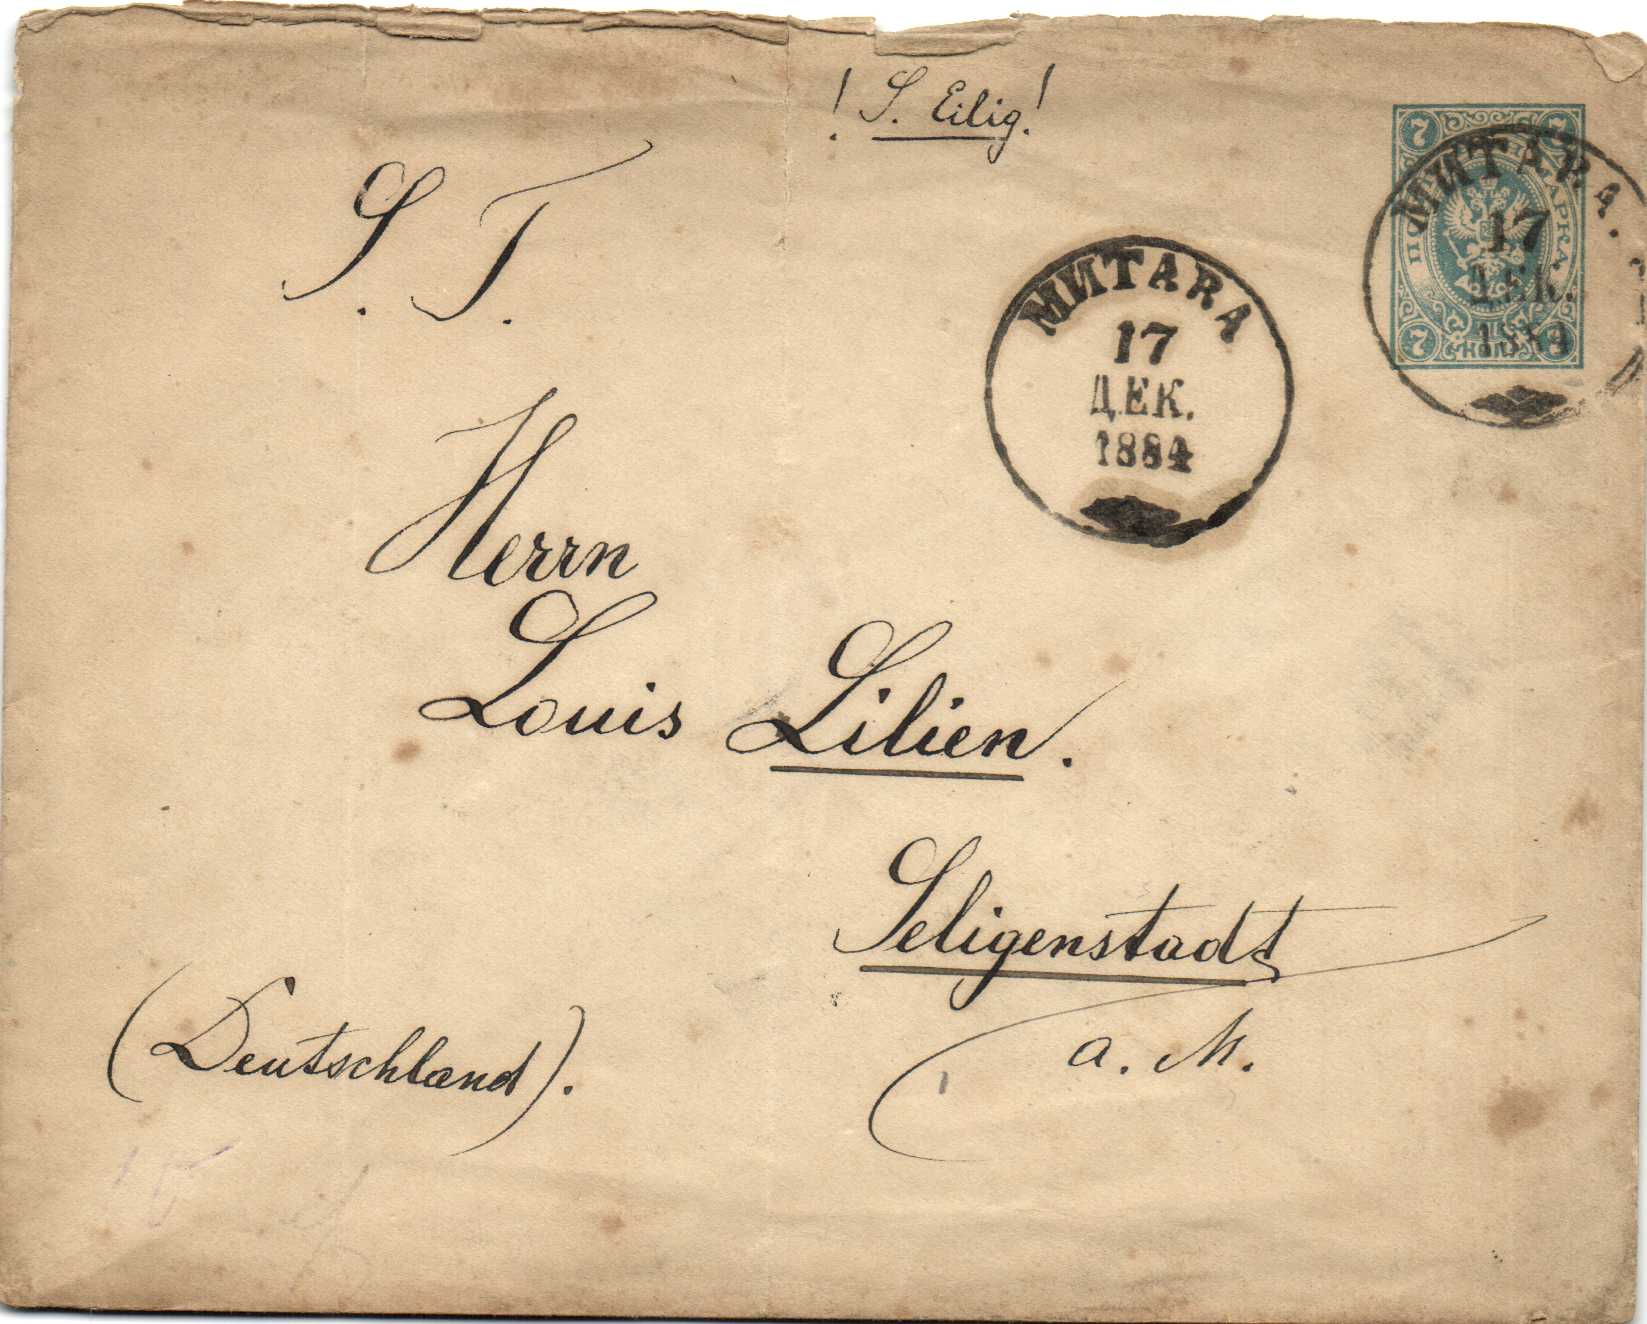 ! S. Eilig!
S. T.
7 7
ПОЧТОВАЯ МАРКА
7 КОП. 7
МИТАВА.
17
ДЕК.
1884
МИТАВА
17
ДЕК.
1884
Herrn
Louis Lilien.
Seligenstadt
a. M.
(Deutschland).